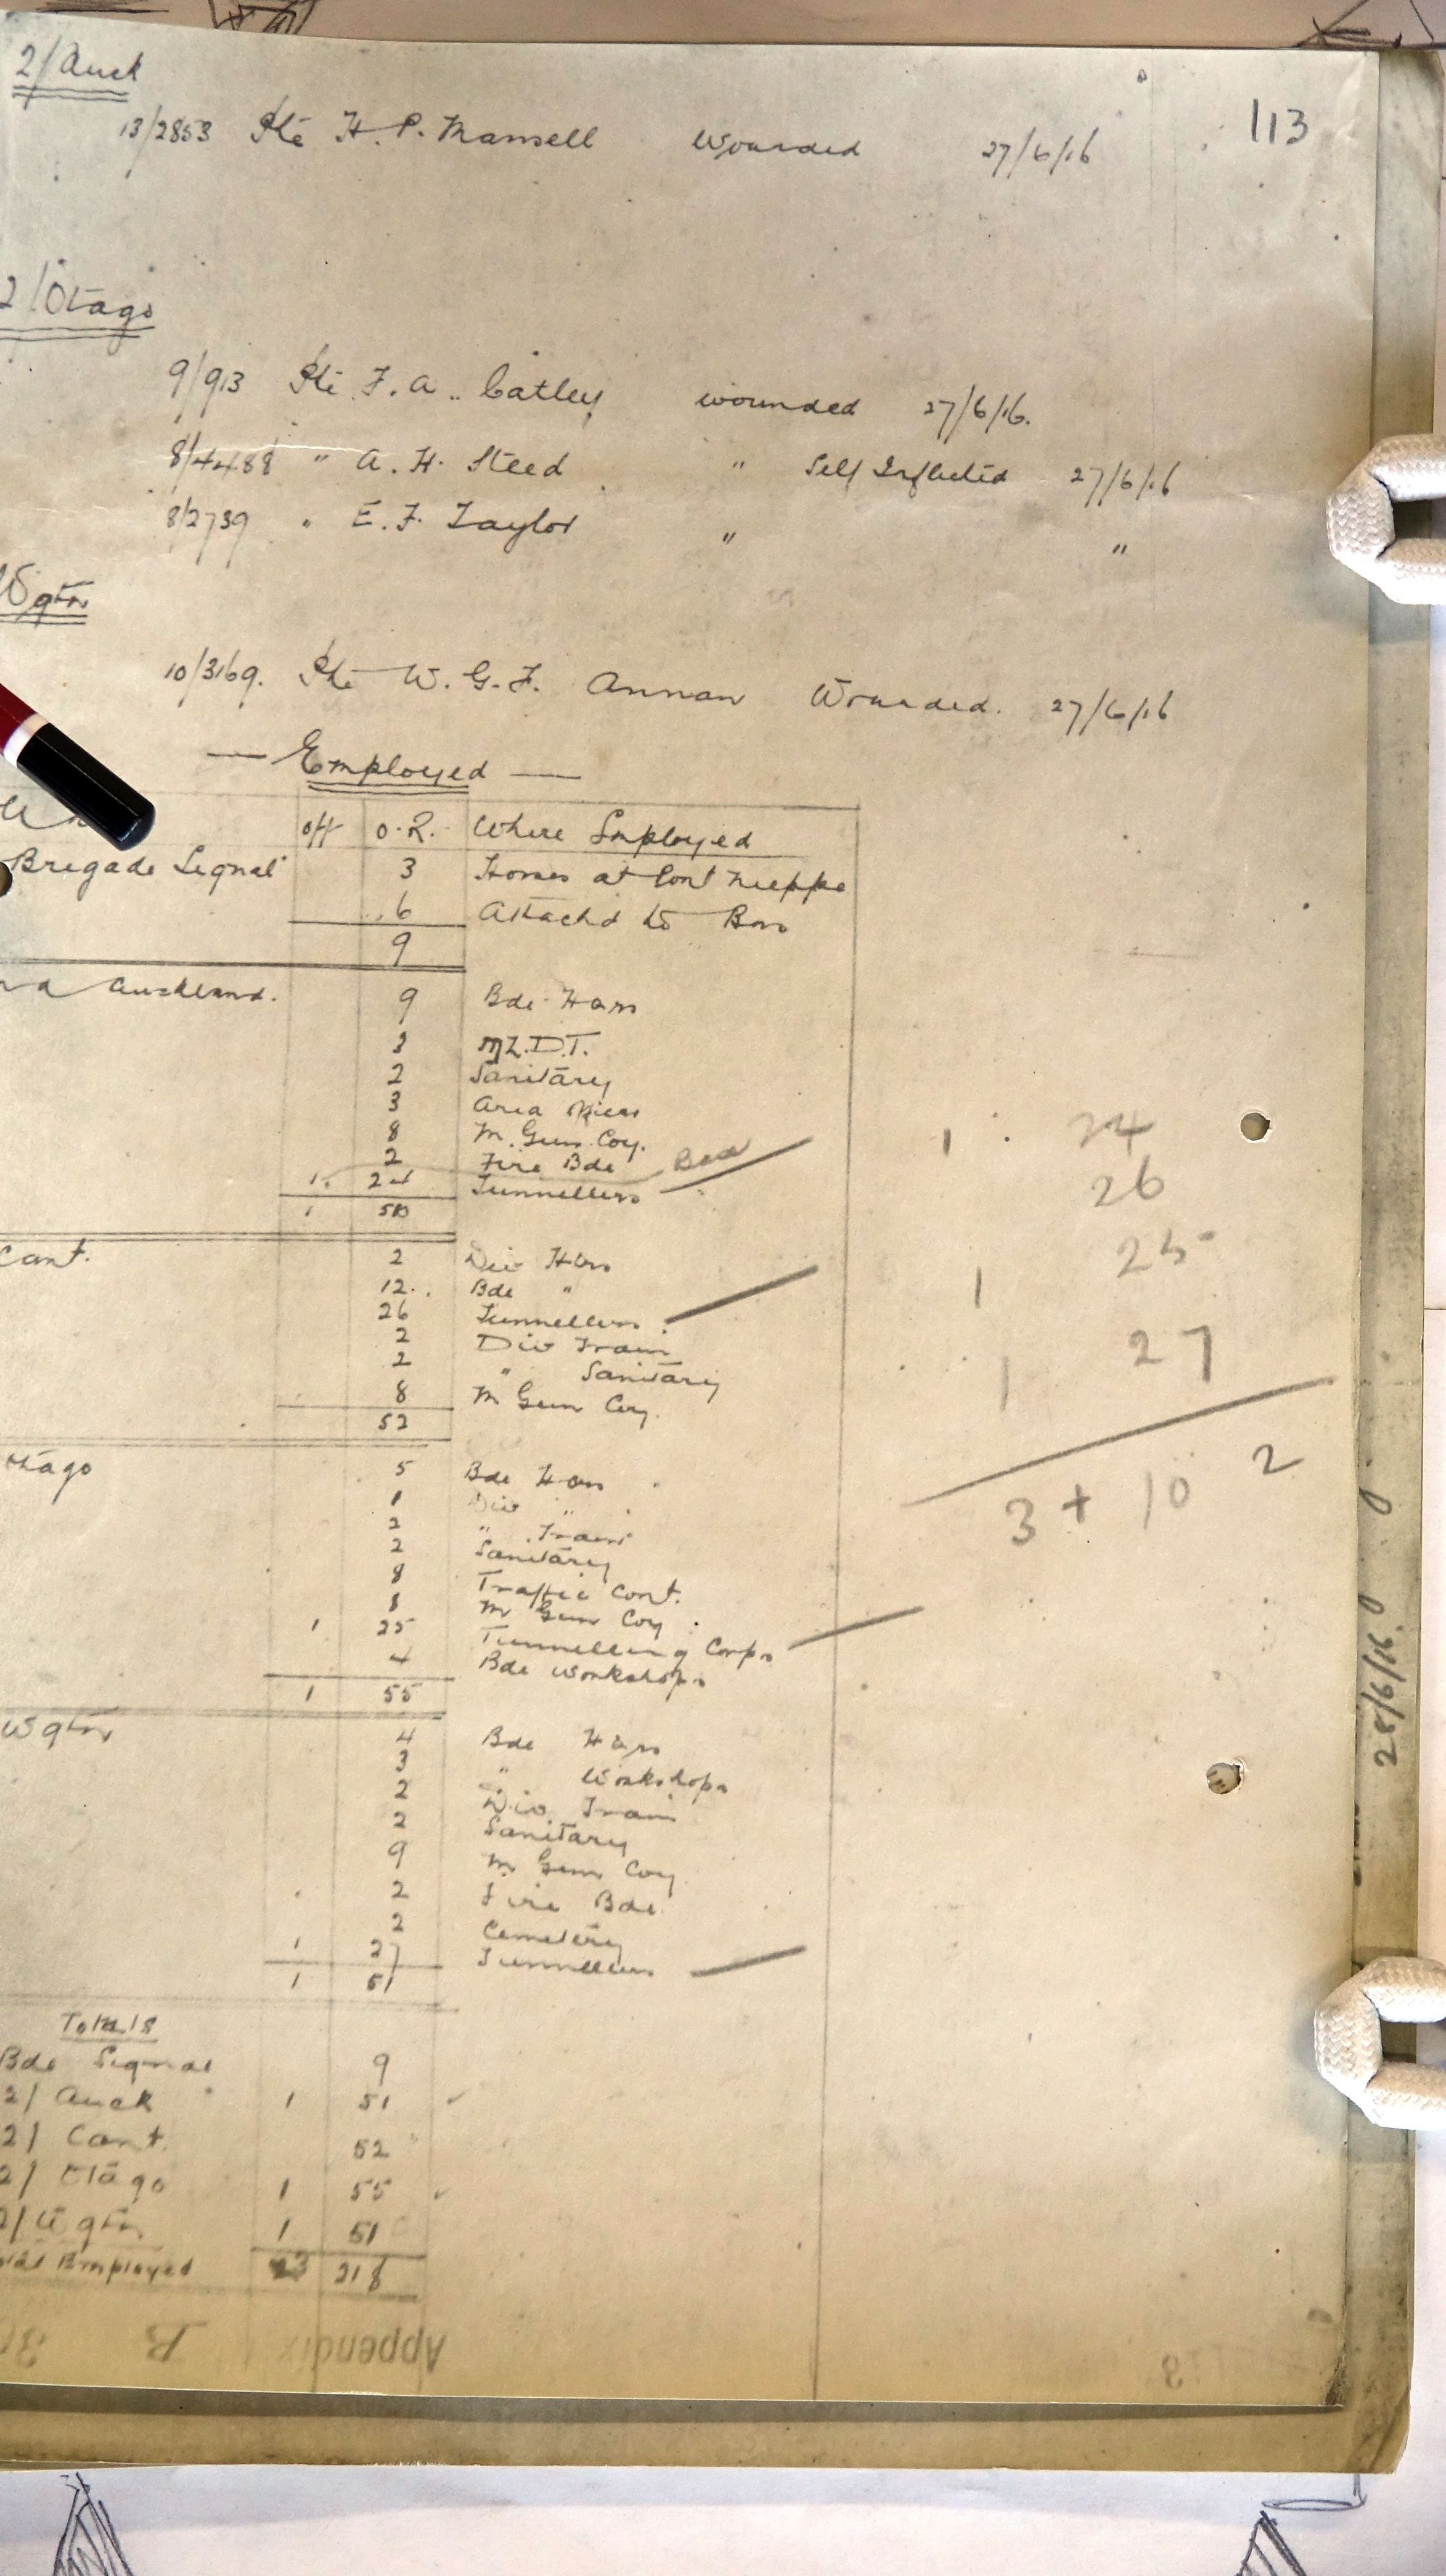 113
2/Auck
13/2853 Pte H. P. Mansell Wounded 27/6/16
2/Otago
9/913 Pte F. A. Catley wounded 27/6/16.
8/4488 " A. H. Steed " Self Inflicted 27/6/16
8/2739 " E. F. Taylor " "
Wgtn
10/3169. Pte W. G. F. Annan Wounded. 27/6/16
— Employed —
Off O.R. Where Employed
Brigade Signal 3 Horses at Pont Nieppe
6 Attachd to Bns
9
Auckland. 9 Bde Hqrs
3
2 Sanitary
3 Area
8 M. Gun Coy.
2 Fire Bde
1. 24 Tunnellers
1 50
Cant. 2 Div Hqrs
12 Bde "
26 Tunnellers
2 Div Train
2 " Sanitary
8 M Gun Coy
52
Otago 5 Bde Hqrs
1 Div "
2 " Train
2 Sanitary
8 Traffic Cont.
8 M Gun Coy
1 25 Tunnelling Corps
4 Bde Workshops
1 55
Wgtn 4 Bde Hqrs
3 " Workshops
2 Div. Train
2 Sanitary
9 M. Gun Coy
2 Fire Bde
2 Cemetery
1 27 Tunnellers
1 51
1 24
26
1 25
1 27
3 + 10 2
Totals
Bde Signal 9
2/ Auck 1 51
2/ Cant. 52
2/ Otago 1 55
2/ Wgtn 1 51
Employed 3 218
Appendix B
28/6/16